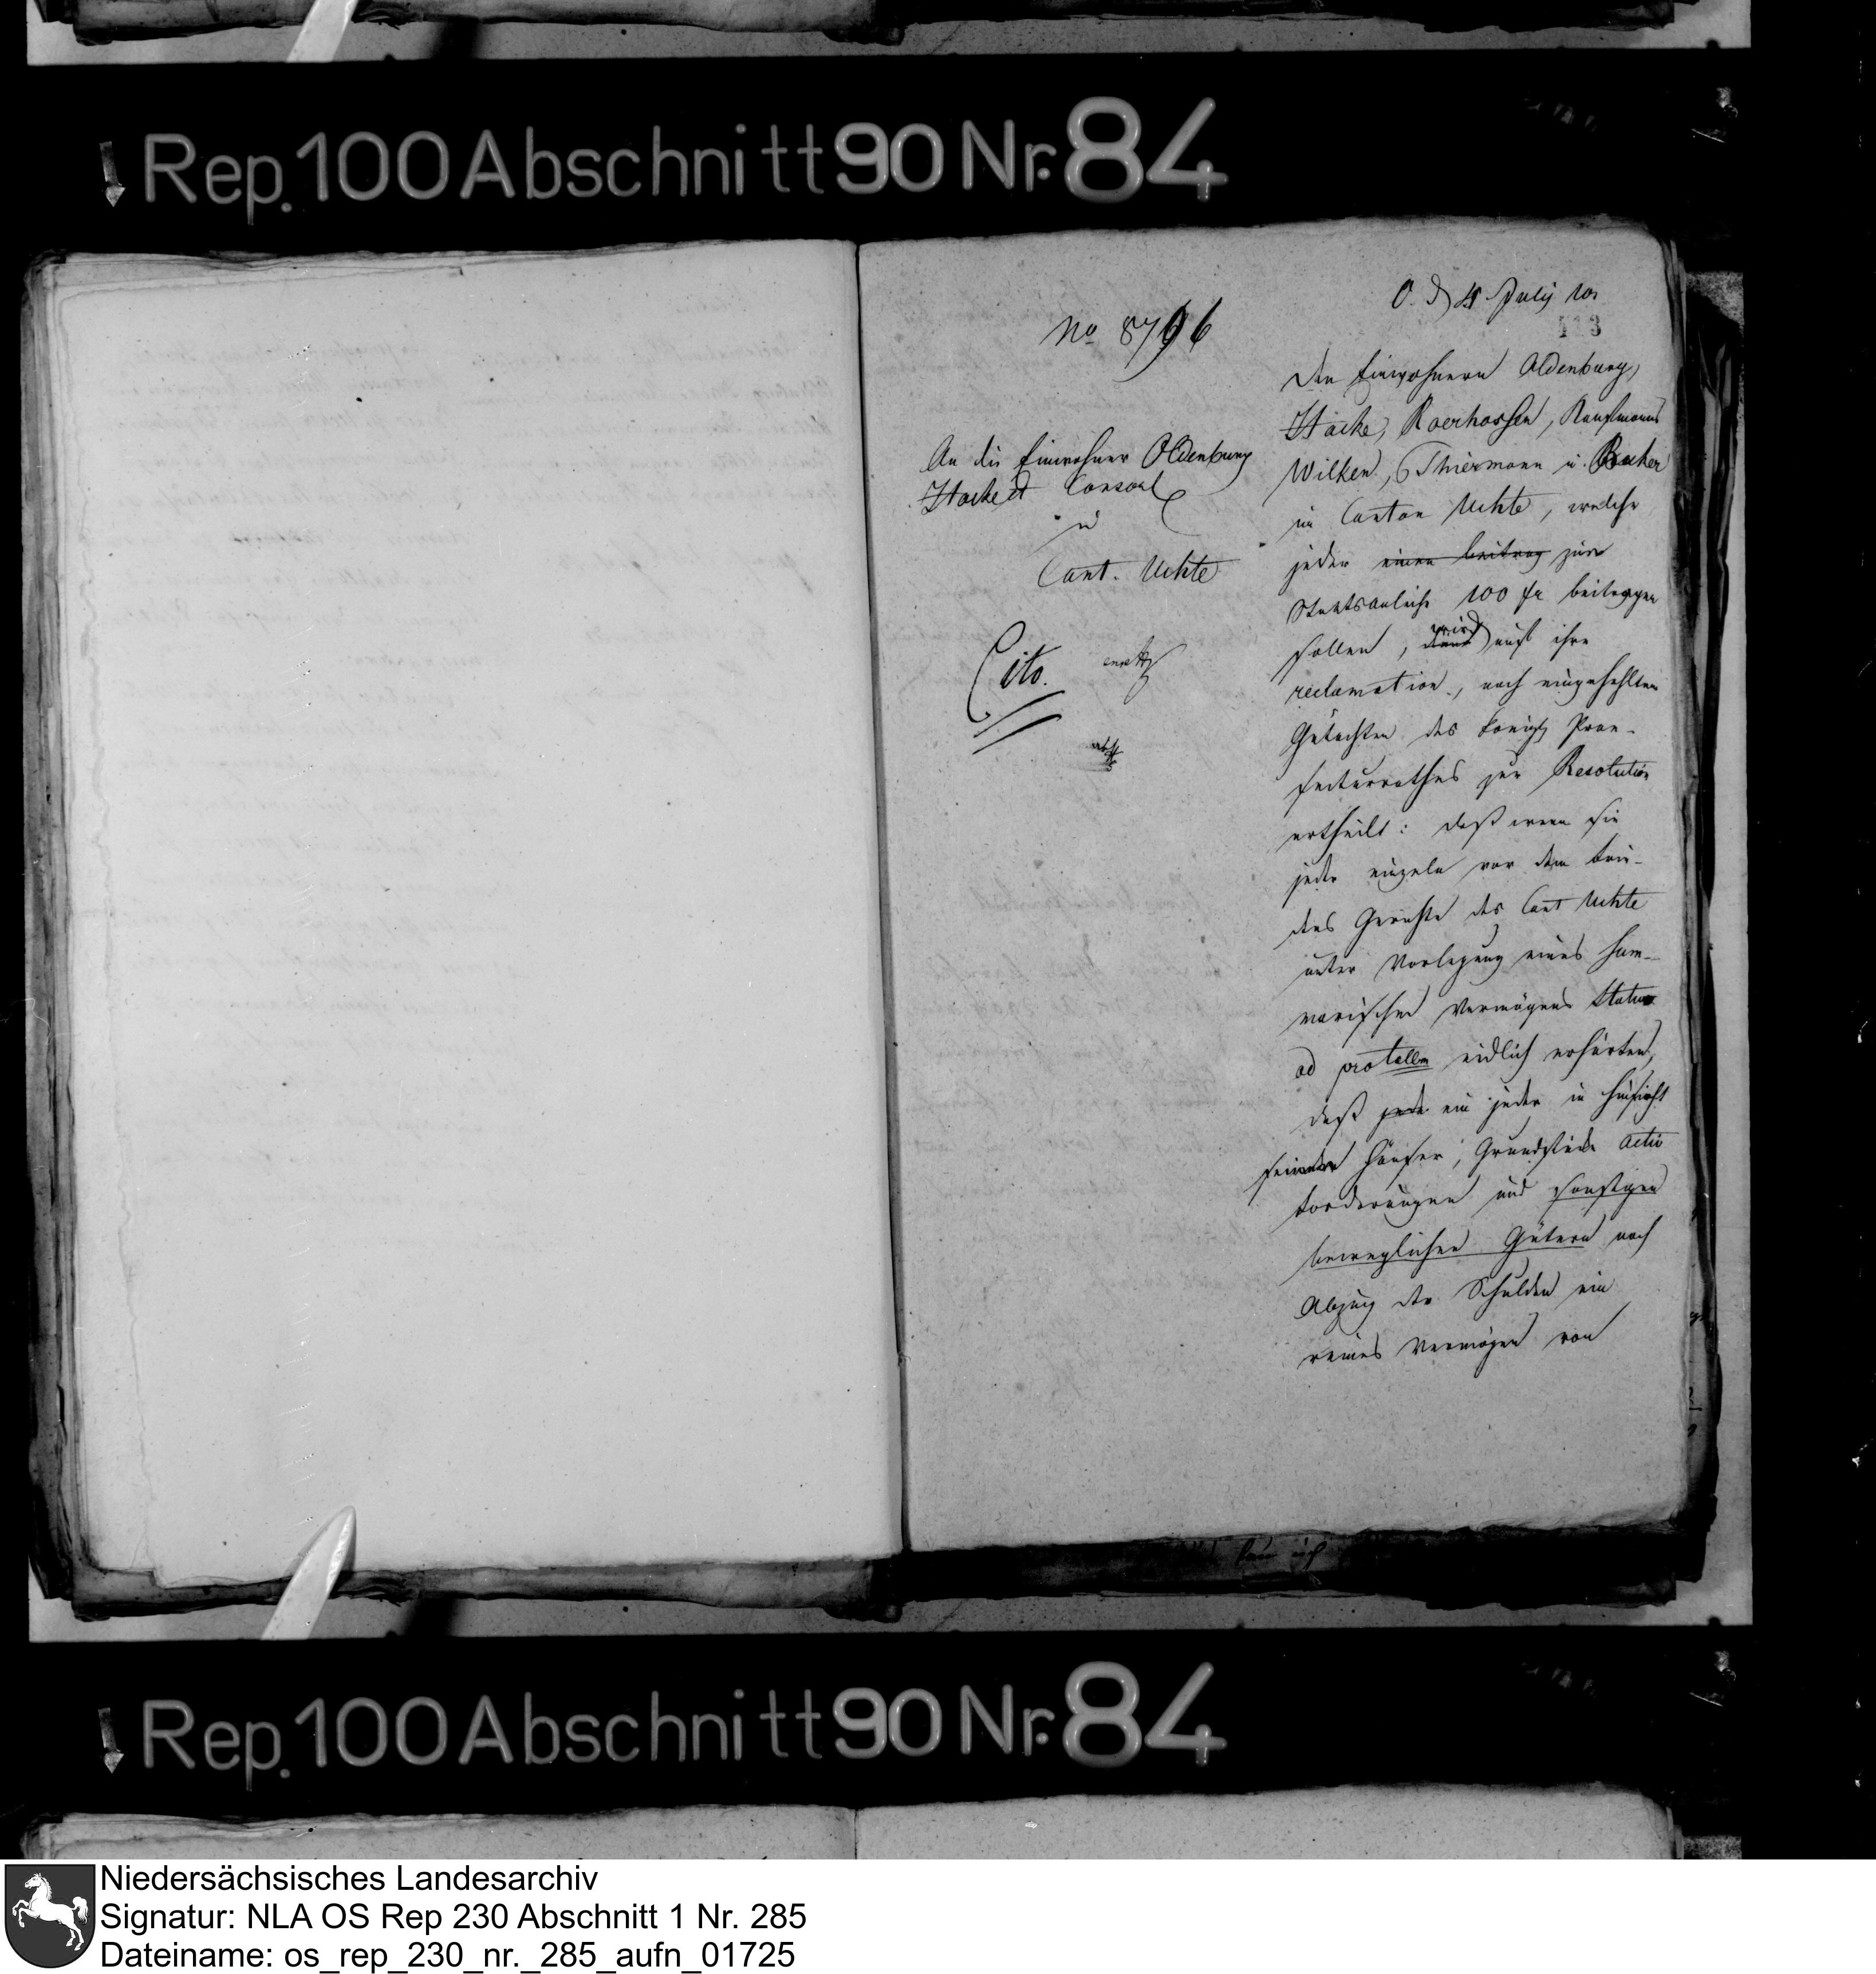 Rep. 100 Abschnitt 90 Nr. 84
O. d 4 July 10.
113
No 8796
An die Einwohner Oldenburg
Stacke et Consort
in
Cant. Uchte
Cito.
Den Einwohnern Oldenburg,
Stacke, Roerhossen, Kaufmanns
Wilken, Thiermann u. Becker
im Canton Uchte, welche
jeder einen Beitrag zur
Staatsanleihe 100 fr beitragen
sollen, wird auf ihre
reclamation, nach eingeholten
Gutachten des Königl Prae-
fecturrathes zur Resolution
ertheilt: daß wenn sie
jeder einzeln vor dem Frie-
dens Gerichte des Cant Uchte
unter Vorlegung eines sum-
marischen Vermögens Status
ad protollm eidlich erhärten,
daß jede ein jeder in Hinsicht
seiner Häuser, Grundstücke activ
Forderungen und sonstigen
beweglichen Gütern nach
Abzug der Schulden ein
reines Vermögen von
Rep. 100 Abschnitt 90 Nr. 84
Niedersächsisches Landesarchiv
Signatur: NLA OS Rep 230 Abschnitt 1 Nr. 285
Dateiname: os_rep_230_nr._285_aufn_01725